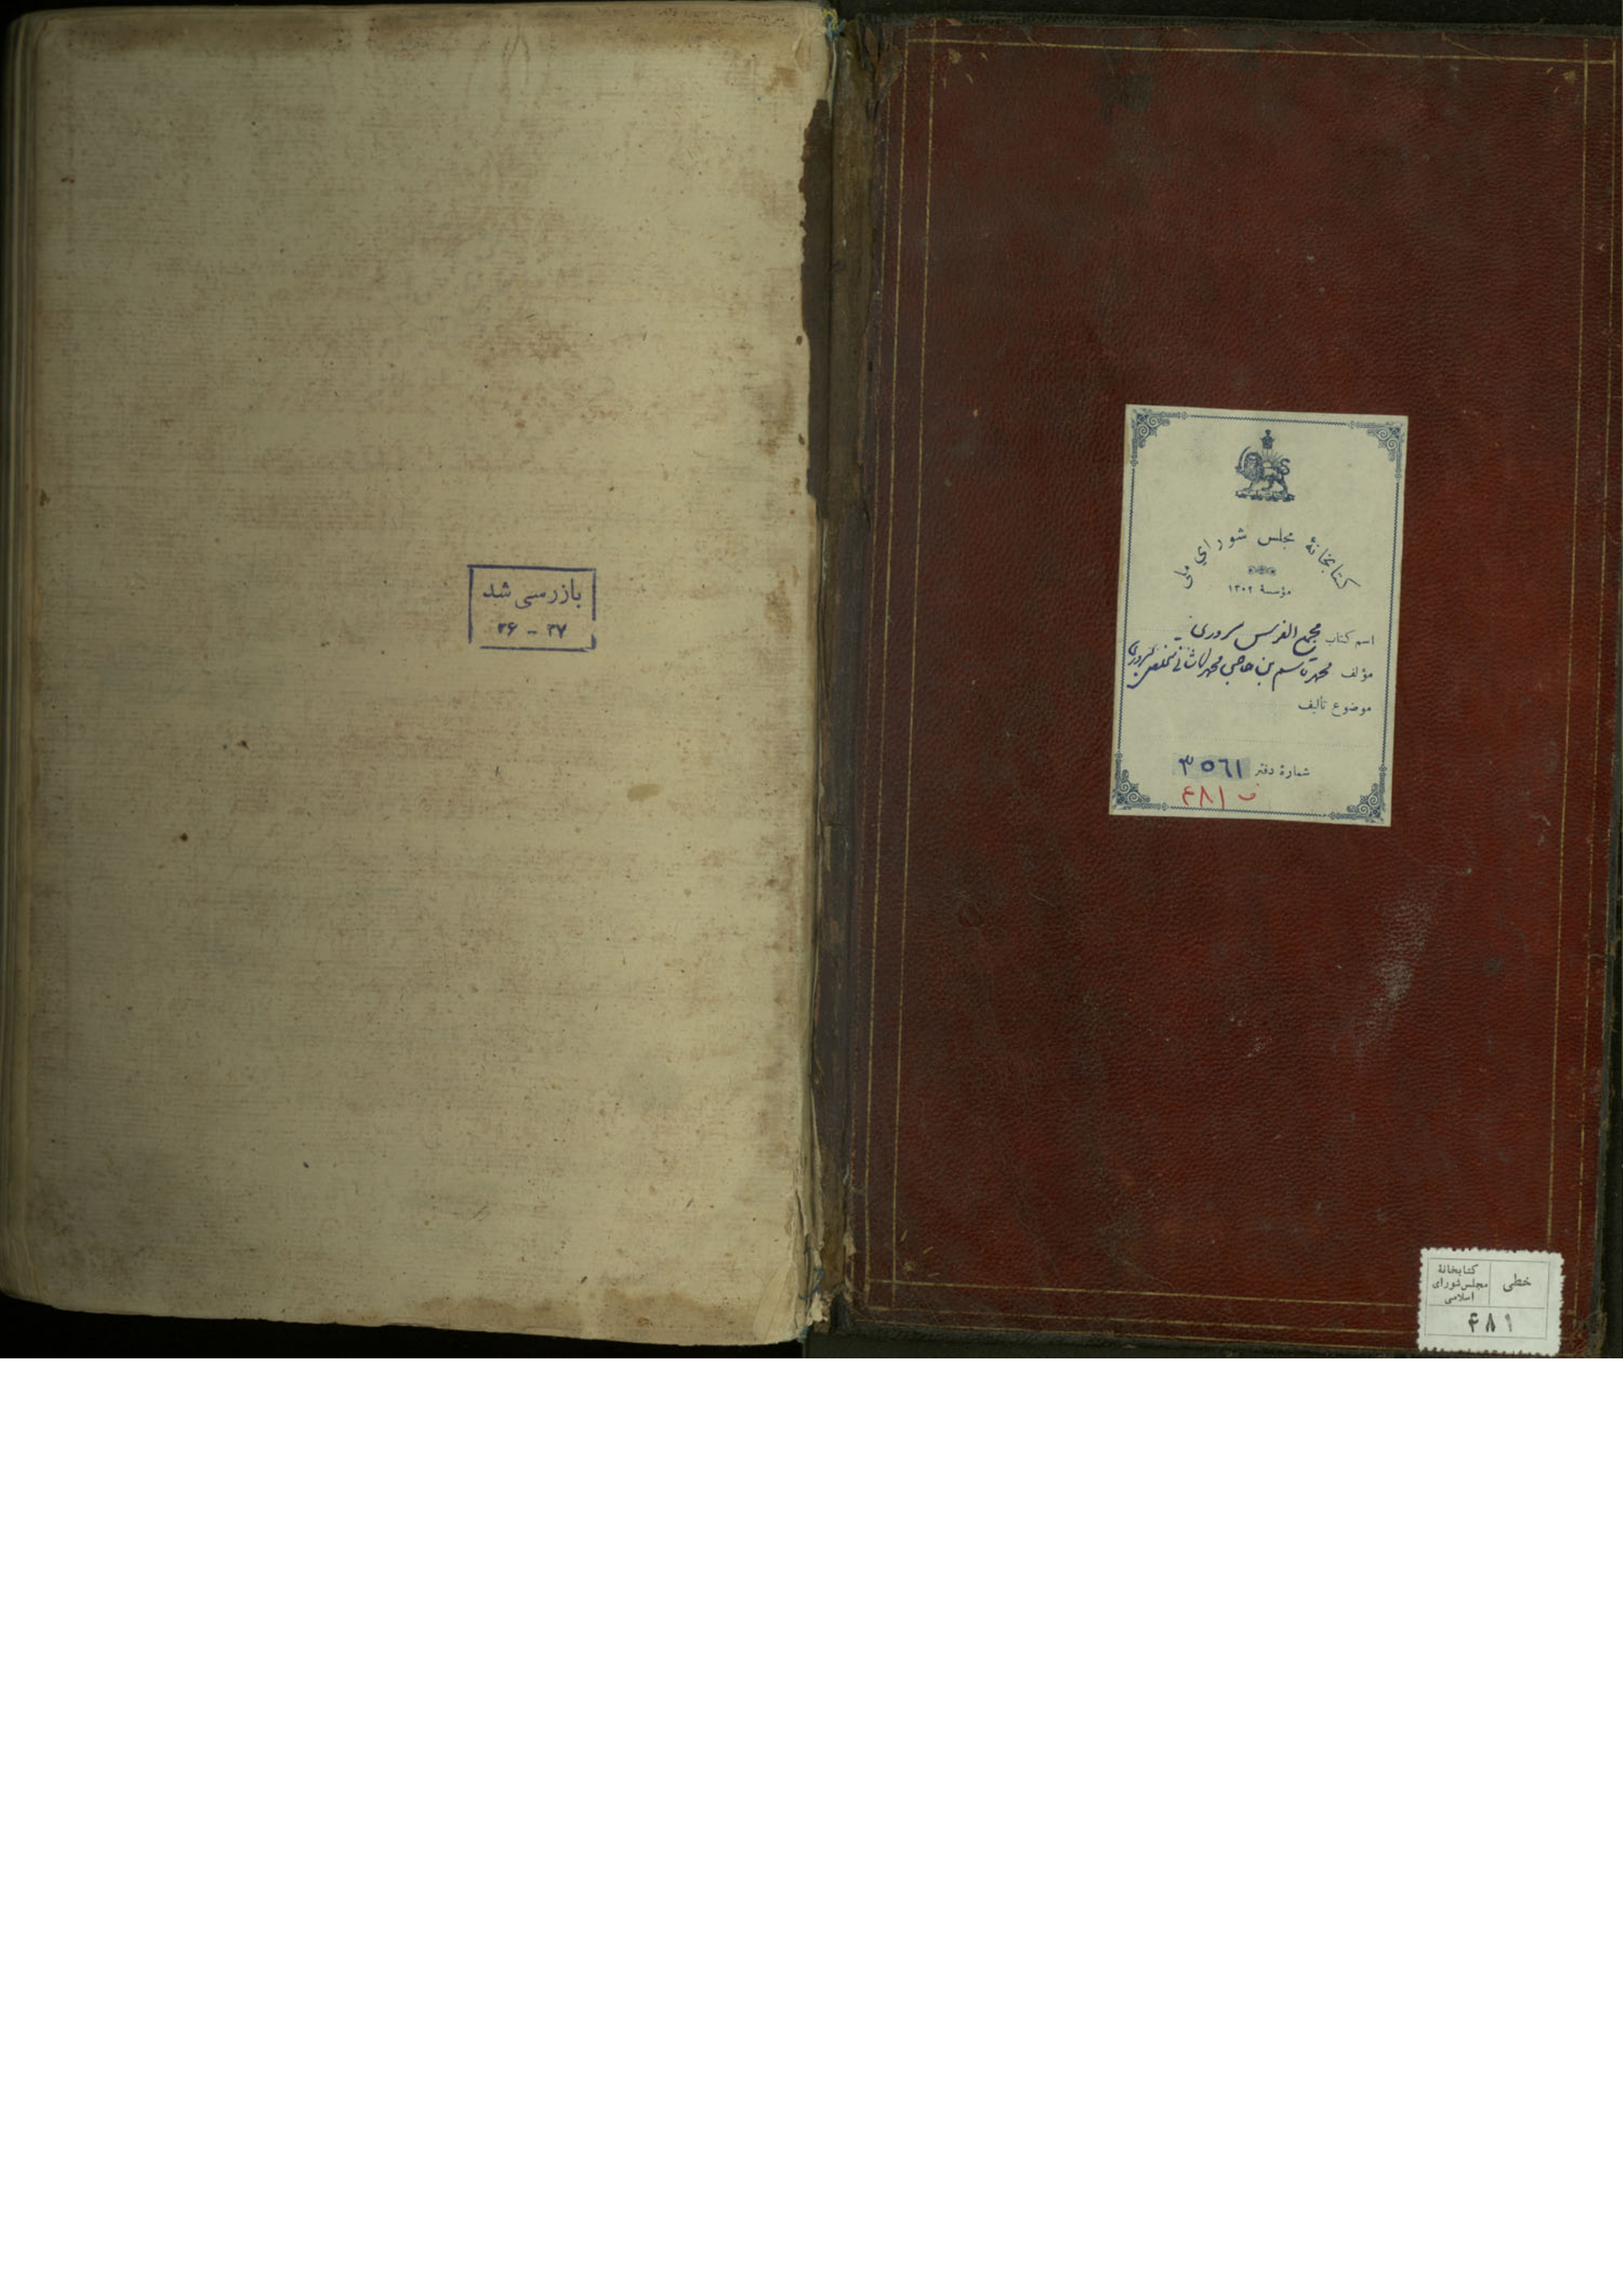 کتابخانهٔ مجلس شورای ملی
مؤسسهٔ ۱۳۰۲
اسم کتاب مجمع الفرس سروری
مؤلف محمد قاسم بن حاجی محمد کاشانی متخلص بسروری
موضوع تألیف
شمارهٔ دفتر ۳۵۶۱
ف ۴۸۱
خطی
کتابخانهٔ
مجلس شورای
اسلامی
۴۸۱
بازرسی شد
۳۶ - ۳۷